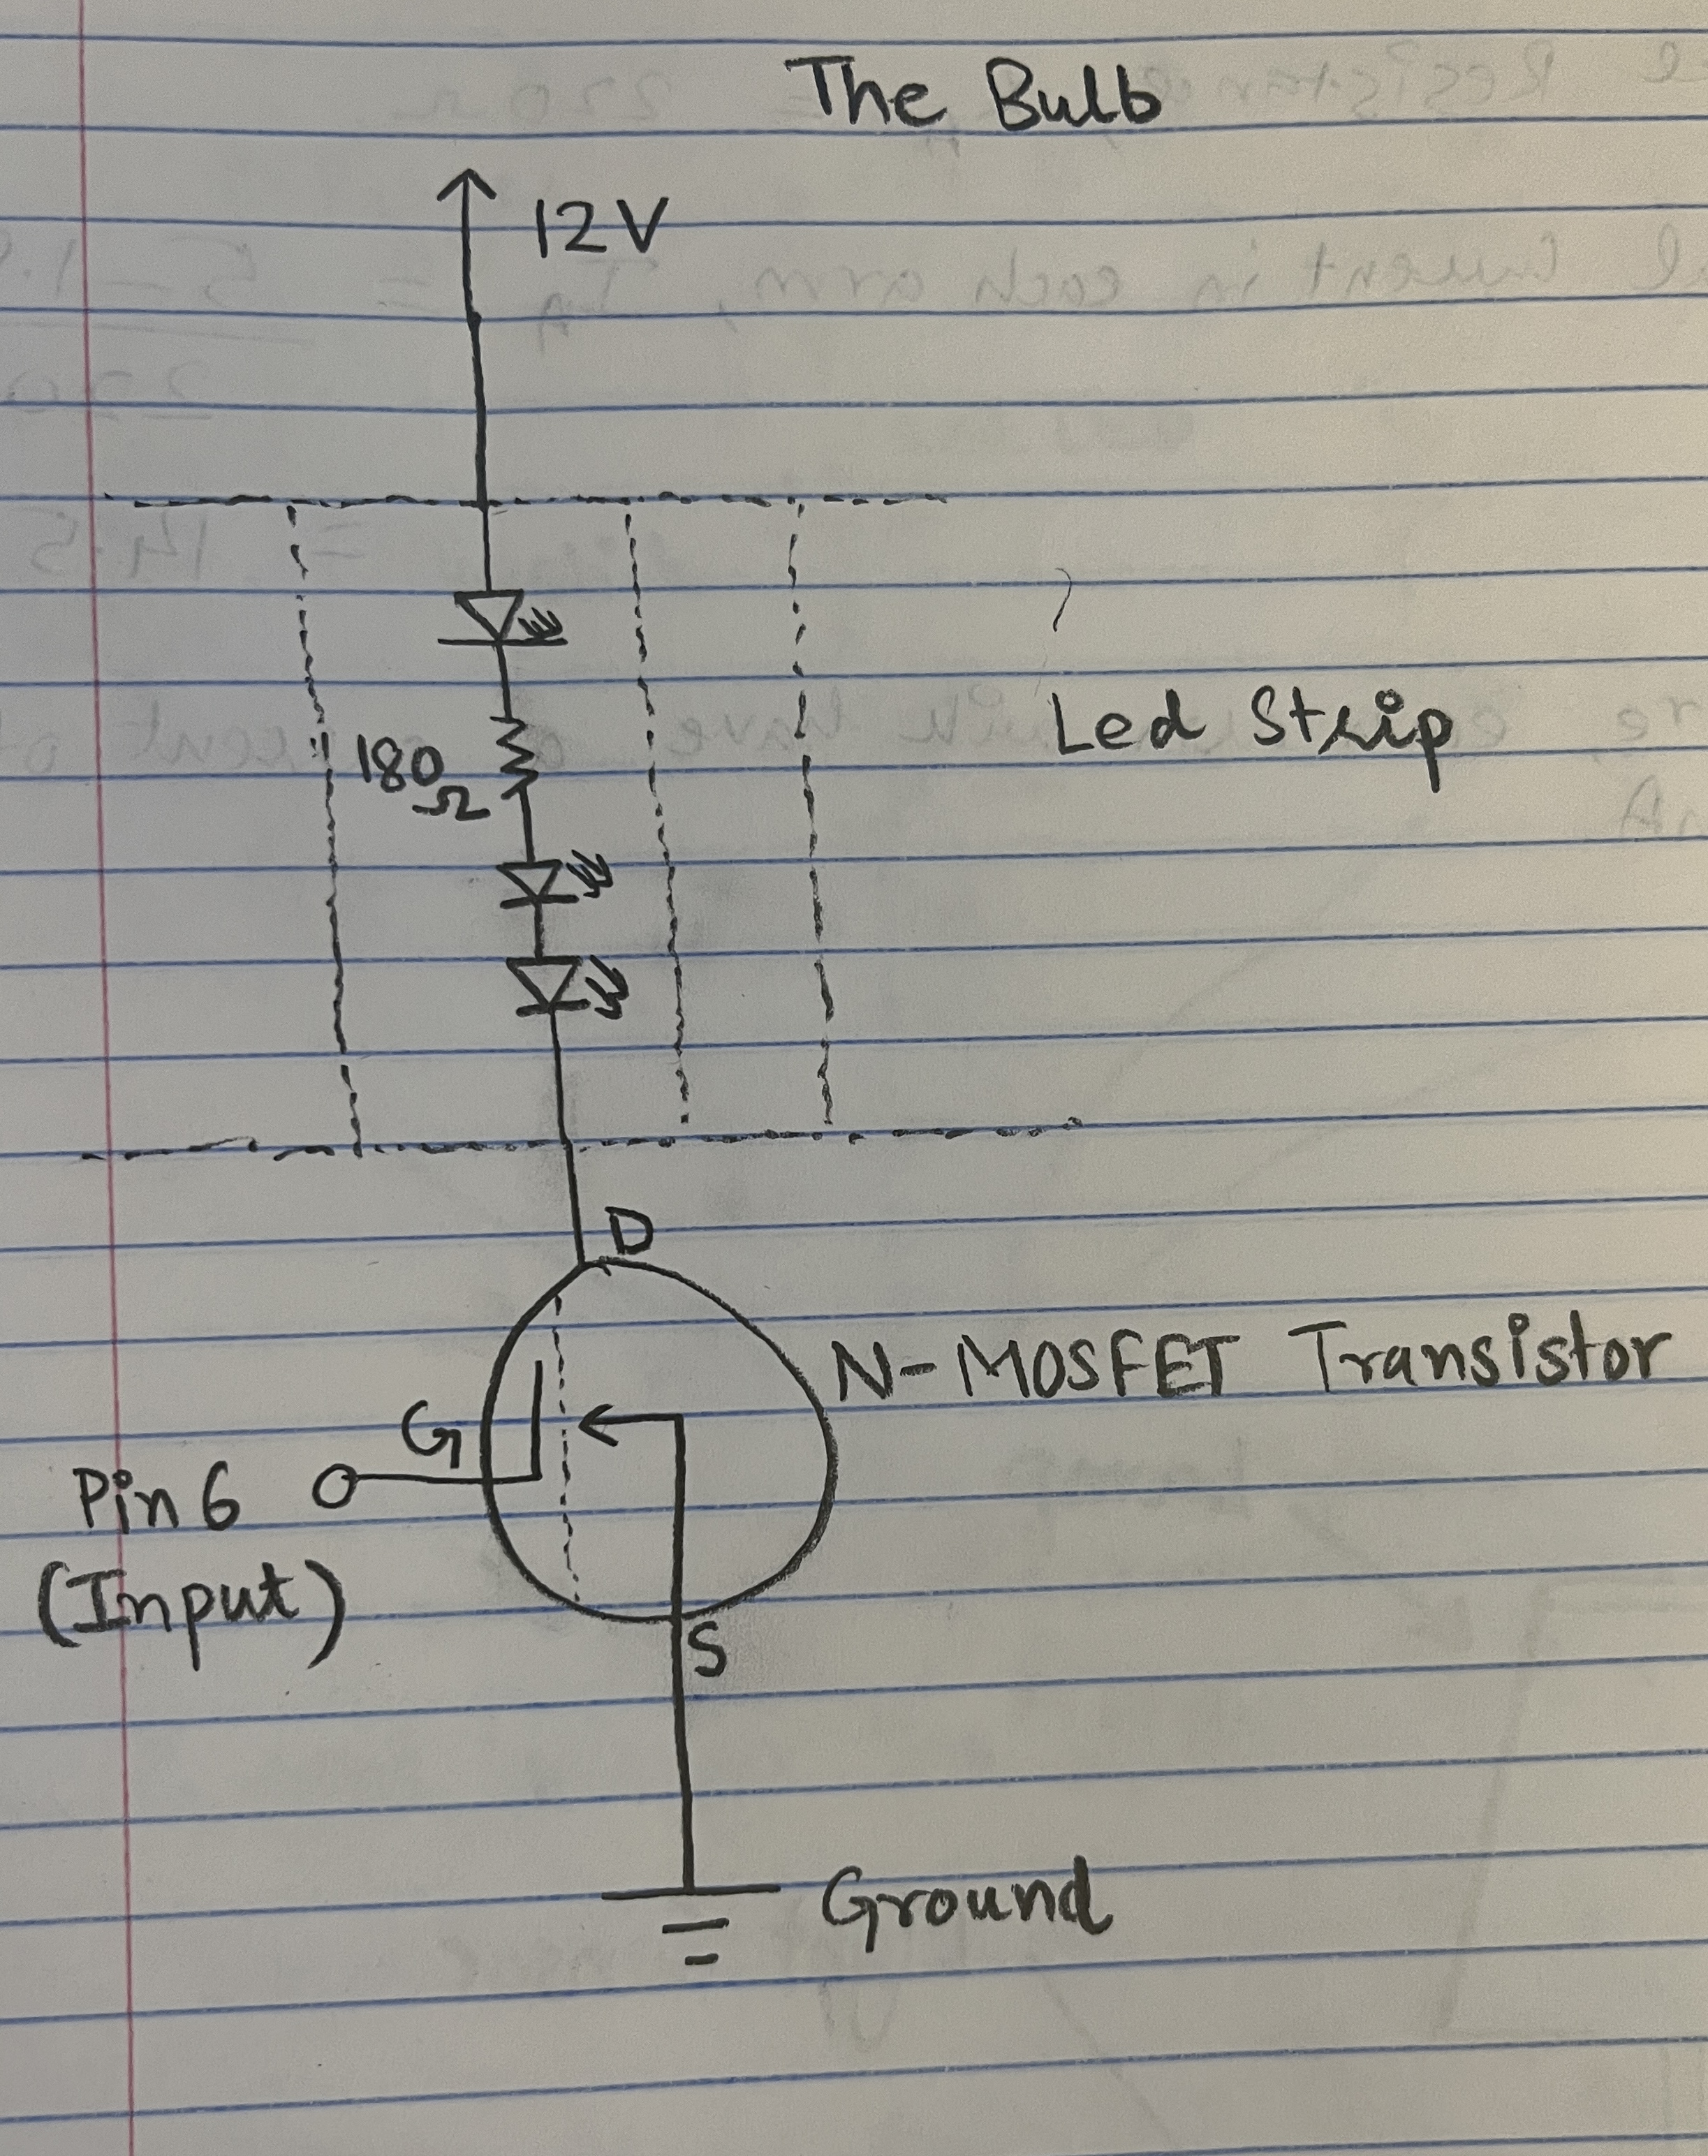 The Bulb
12V
180
Ω
Led Strip
D
N-MOSFET Transistor
G
Pin 6
(Input)
S
Ground